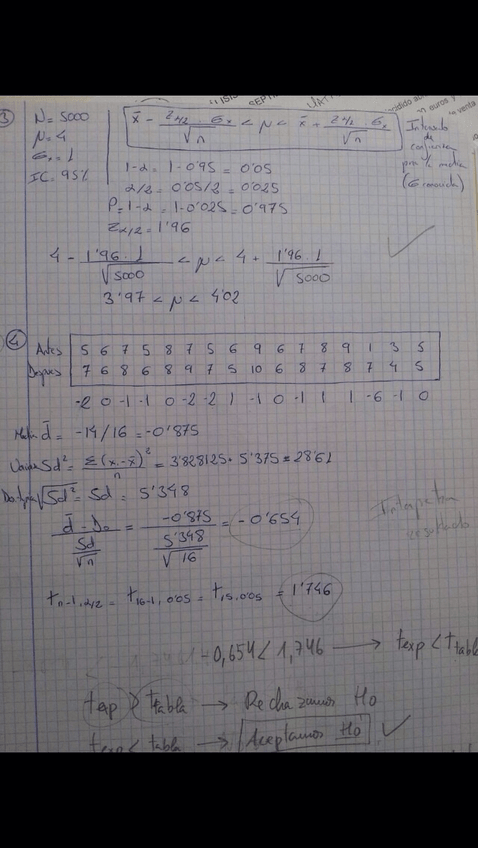 ③ N = 5000
μ = 4
σx = 1
IC = 95%
x̄ - Zα/2 · σx / √n < μ < x̄ + Zα/2 · σx / √n
Intervalo de confianza para la media (σ conocida)
1-α = 1-0'95 = 0'05
α/2 = 0'05/2 = 0'025
P = 1-α = 1-0'025 = 0'975
Zα/2 = 1'96
4 - 1'96 · 1 / √5000 < μ < 4 + 1'96 · 1 / √5000
3'97 < μ < 4'02
④
Antes 5 6 7 5 8 7 5 6 9 6 7 8 9 1 3 5
Después 7 6 8 6 8 9 7 5 10 6 8 7 8 7 4 5
-2 0 -1 -1 0 -2 -2 1 -1 0 -1 1 1 -6 -1 0
Media d̄ = -14/16 = -0'875
Sd² = Σ(x-x̄)² / n = 3'828125 · 5'375 = 28'61
√Sd² = Sd = 5'348
d̄ - D₀ / Sd/√n = -0'875 / 5'348/√16 = -0'654
Interpreta resultado
t n-1, α/2 = t 16-1, 0'05 = t 15, 0'05 = 1'746
-0,654 < 1,746 → texp < ttabla
texp > ttabla → Rechazamos Ho
texp < tabla → Aceptamos Ho